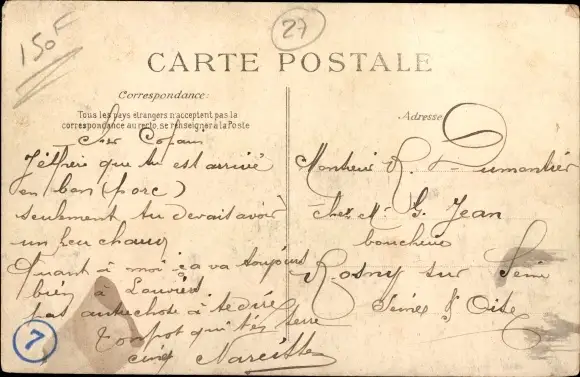 150F
27
CARTE POSTALE
Correspondance:
Tous les pays étrangers n'acceptent pas la
correspondance au recto, se renseigner à la Poste
Adresse
Cher Copain
J'éspère que tu est arrivé
en bon (porc)
seulement tu devait avoir
un peu chaud
Quant à moi ça va toujours
bien à Louviers.
pas autre chose à te dire
ton pot qui t'en serre
cinq Narcisse
Monsieur R. Dumontier
chez Mr G. Jean
boucherie
Rosny sur Seine
Seine & Oise
7